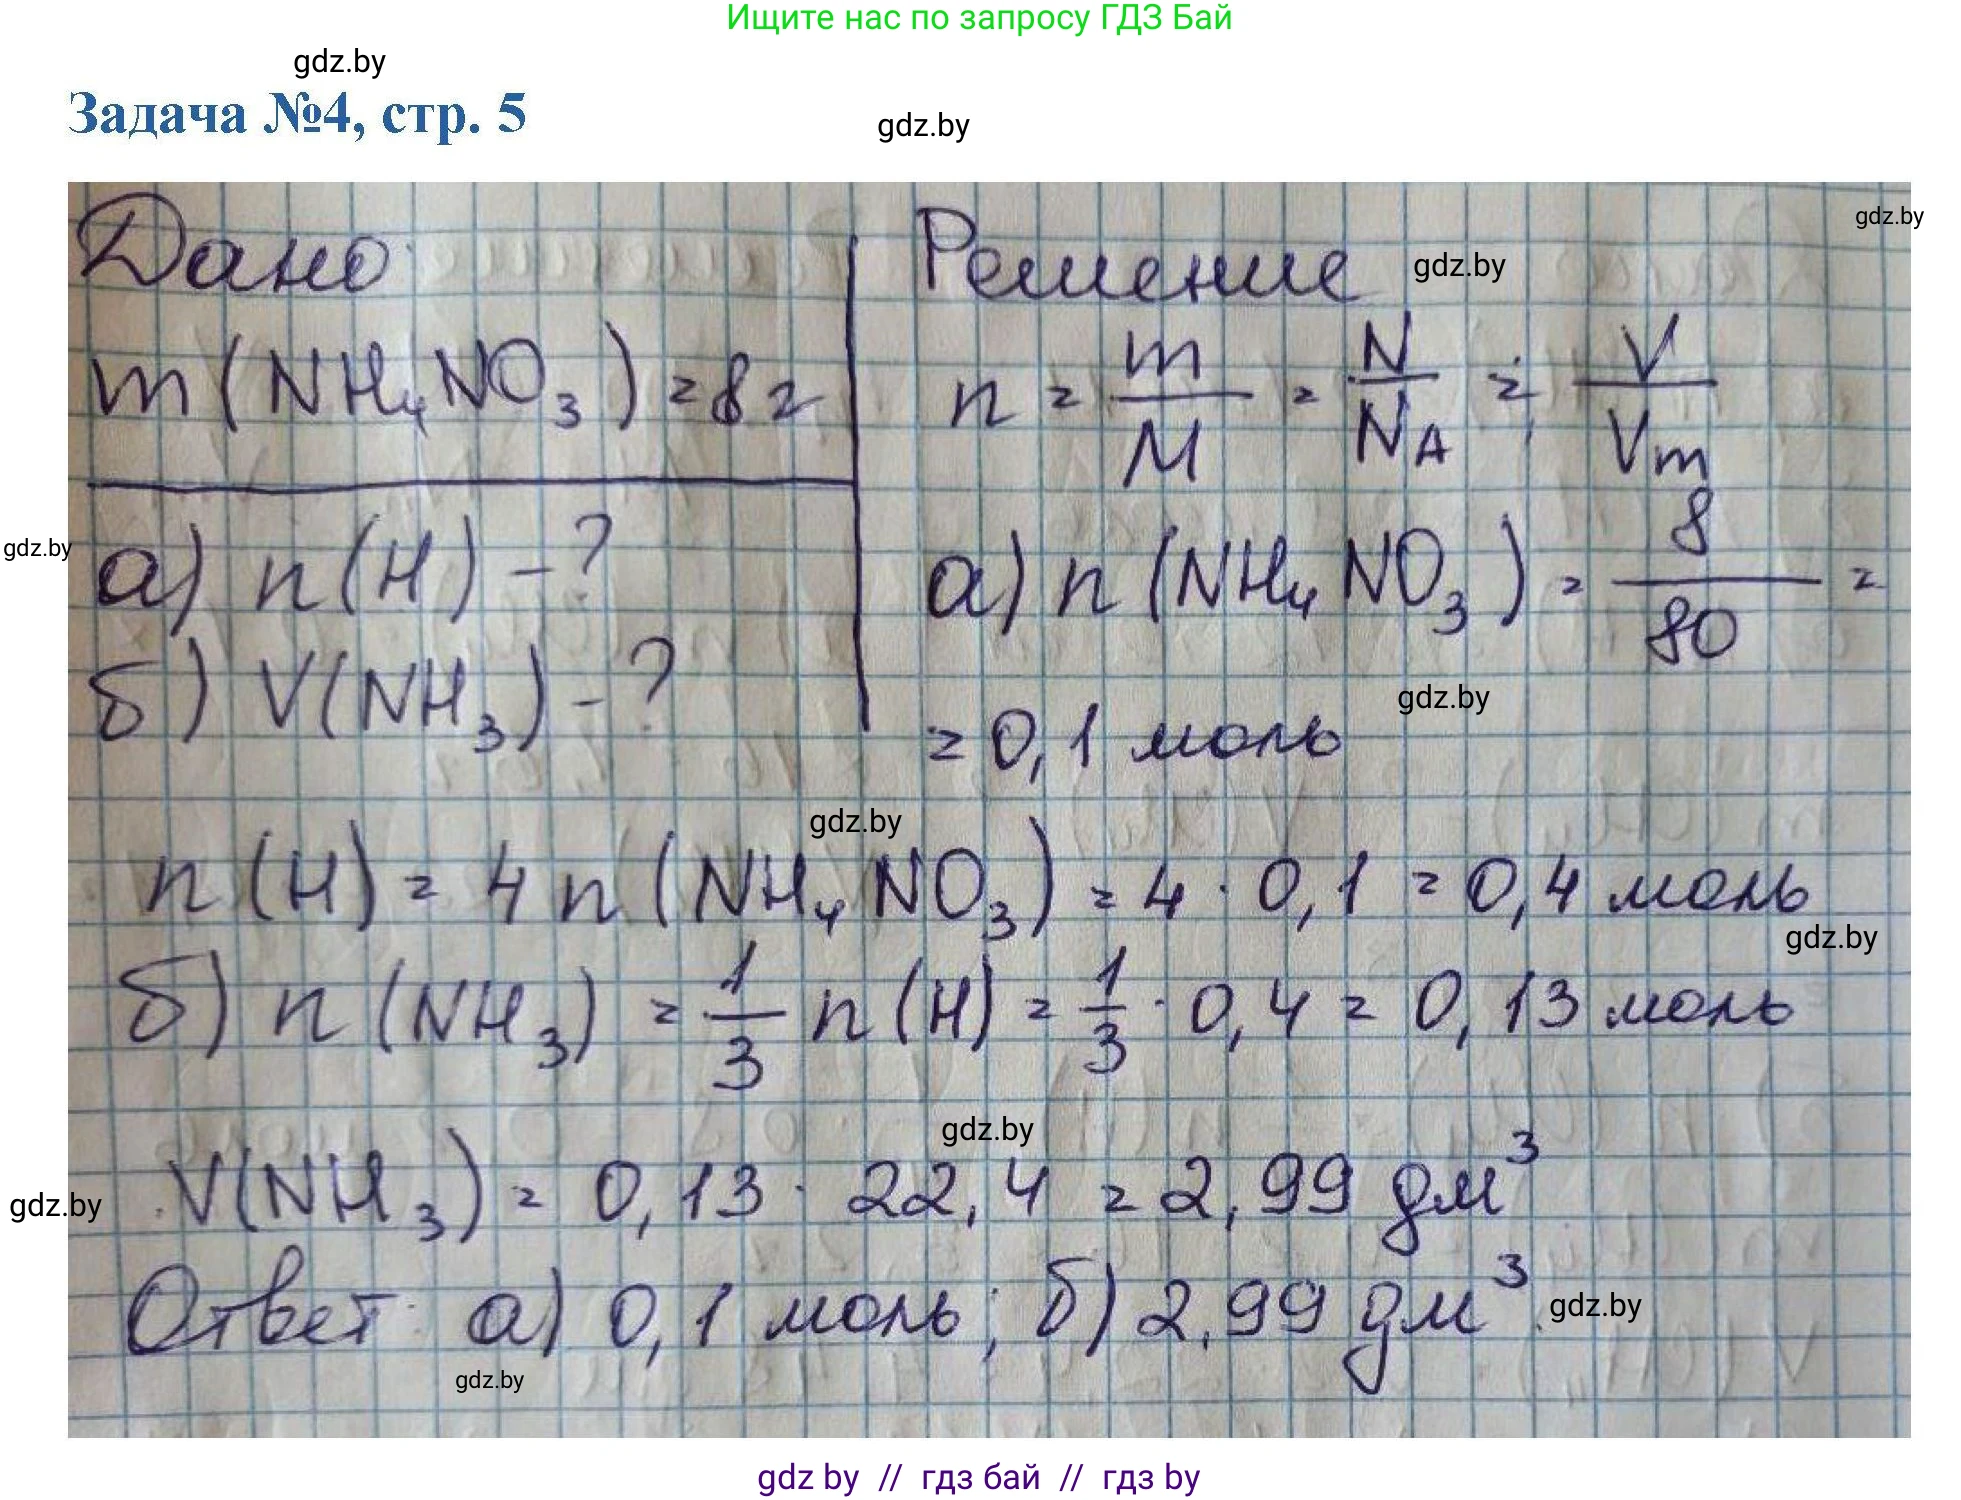 Ищите нас по запросу ГДЗ Бай
gdz.by
Задача №4, стр. 5
gdz.by
gdz.by
Дано: Решение
gdz.by
m(NH₄NO₃) = 8 г
n = m/M = N/N_A = V/Vm
gdz.by
а) n(H) - ?
а) n(NH₄NO₃) = 8/80 =
б) V(NH₃) - ?
gdz.by
= 0,1 моль
gdz.by
n(H) = 4 n(NH₄NO₃) = 4 · 0,1 = 0,4 моль
gdz.by
б) n(NH₃) = 1/3 n(H) = 1/3 · 0,4 = 0,13 моль
gdz.by
V(NH₃) = 0,13 · 22,4 = 2,99 дм³
gdz.by
Ответ: а) 0,1 моль; б) 2,99 дм³.
gdz.by
gdz.by
gdz by // гдз бай // гдз by